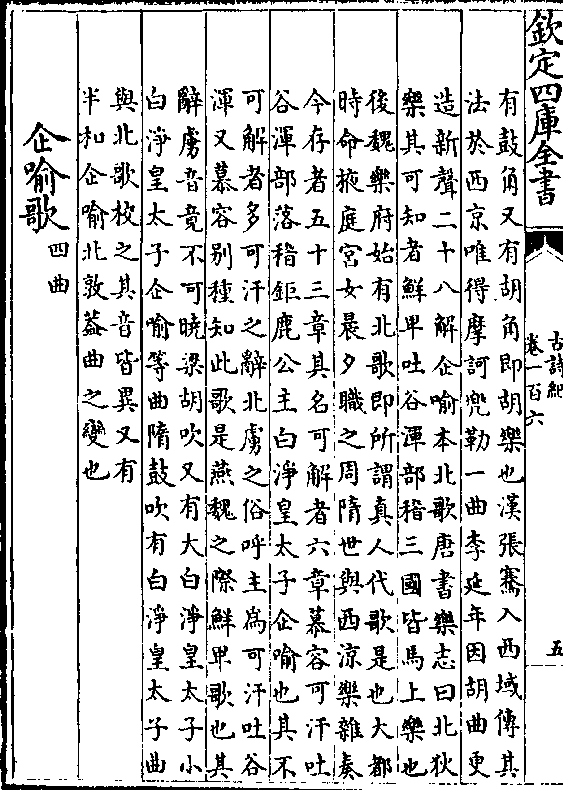 欽定四庫全書
古詩紀
卷一百六
五
有鼓角又有胡角即胡樂也漢張騫入西域傳其
法於西京唯得摩訶兜勒一曲李延年因胡曲更
造新聲二十八解企喻本北歌唐書樂志曰北狄
樂其可知者鮮卑吐谷渾部稽三國皆馬上樂也
後魏樂府始有北歌即所謂真人代歌是也大都
時命掖庭宮女晨夕職之周隋世與西涼樂雜奏
今存者五十三章其名可解者六章慕容可汗吐
谷渾部落稽鉅鹿公主白淨皇太子企喻也其不
可解者多可汗之辭北虜之俗呼主為可汗吐谷
渾又慕容别種知此歌是燕魏之際鮮卑歌也其
辭虜音竟不可曉梁胡吹又有大白淨皇太子小
白淨皇太子企喻等曲隋鼓吹有白淨皇太子曲
與北歌校之其音皆異又有
半和企喻北敦葢曲之變也
企喻歌
四曲